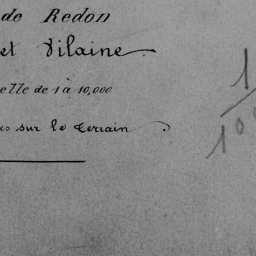 de Redon
et Vilaine
elle de 1 à 10,000
sur le terrain
1